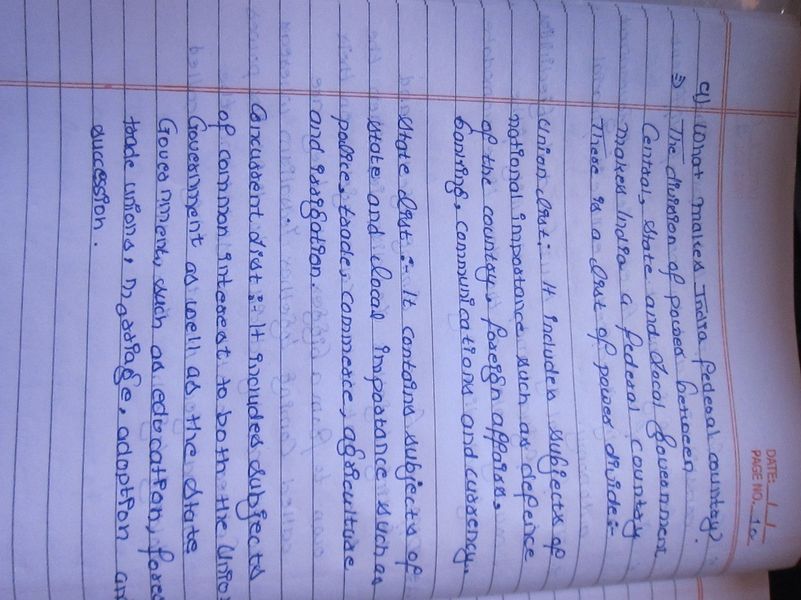 DATE: / /
PAGE NO. 10
c) What makes India federal country?
⇒ The division of power between
Central, State and Local Government
makes India a federal country.
There is a List of power divide:-
Union List:- It includes subjects of
national importance such as defence
of the country, foreign affairs,
banking, communications and currency.
State List:- It contains subjects of
state and local importance such as
police, trade, commerce, agriculture
and irrigation.
Concurrent List:- It includes subjects
of common interest to both the Unio
Government as well as the State
Government, such as education, fores
trade unions, marriage, adoption an
succession.